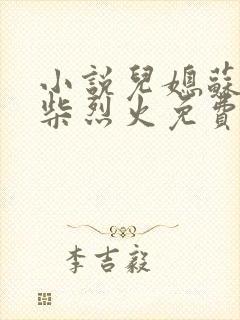 小説兒媳蘇
柴烈火免費
李吉毅